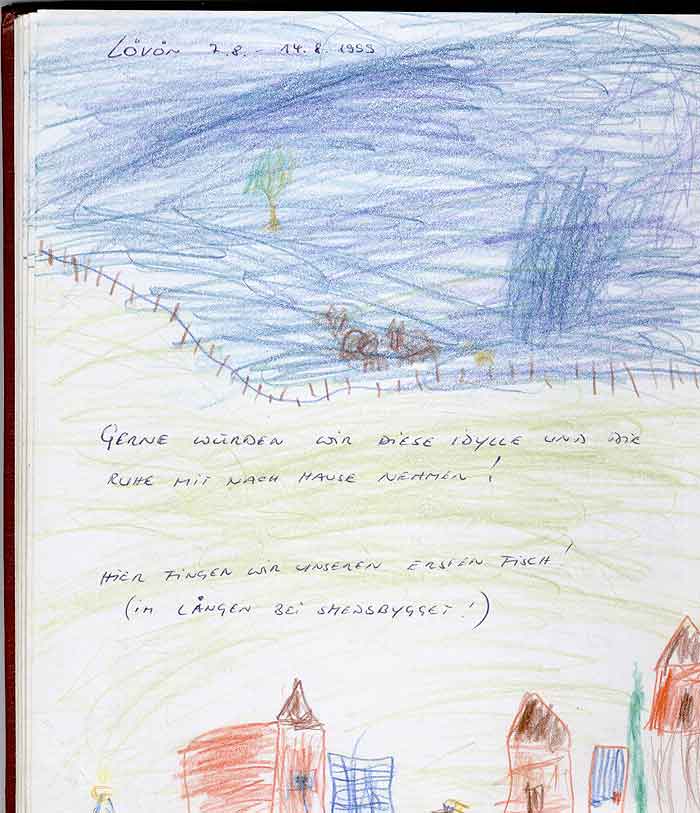 LÖVÖN 7.8. - 14.8. 1999
GERNE WÜRDEN WIR DIESE IDYLLE UND DIE
RUHE MIT NACH HAUSE NEHMEN!
HIER FINGEN WIR UNSEREN ERSTEN FISCH!
(IM LÅNGEN BEI SMEDSBYGGET!)